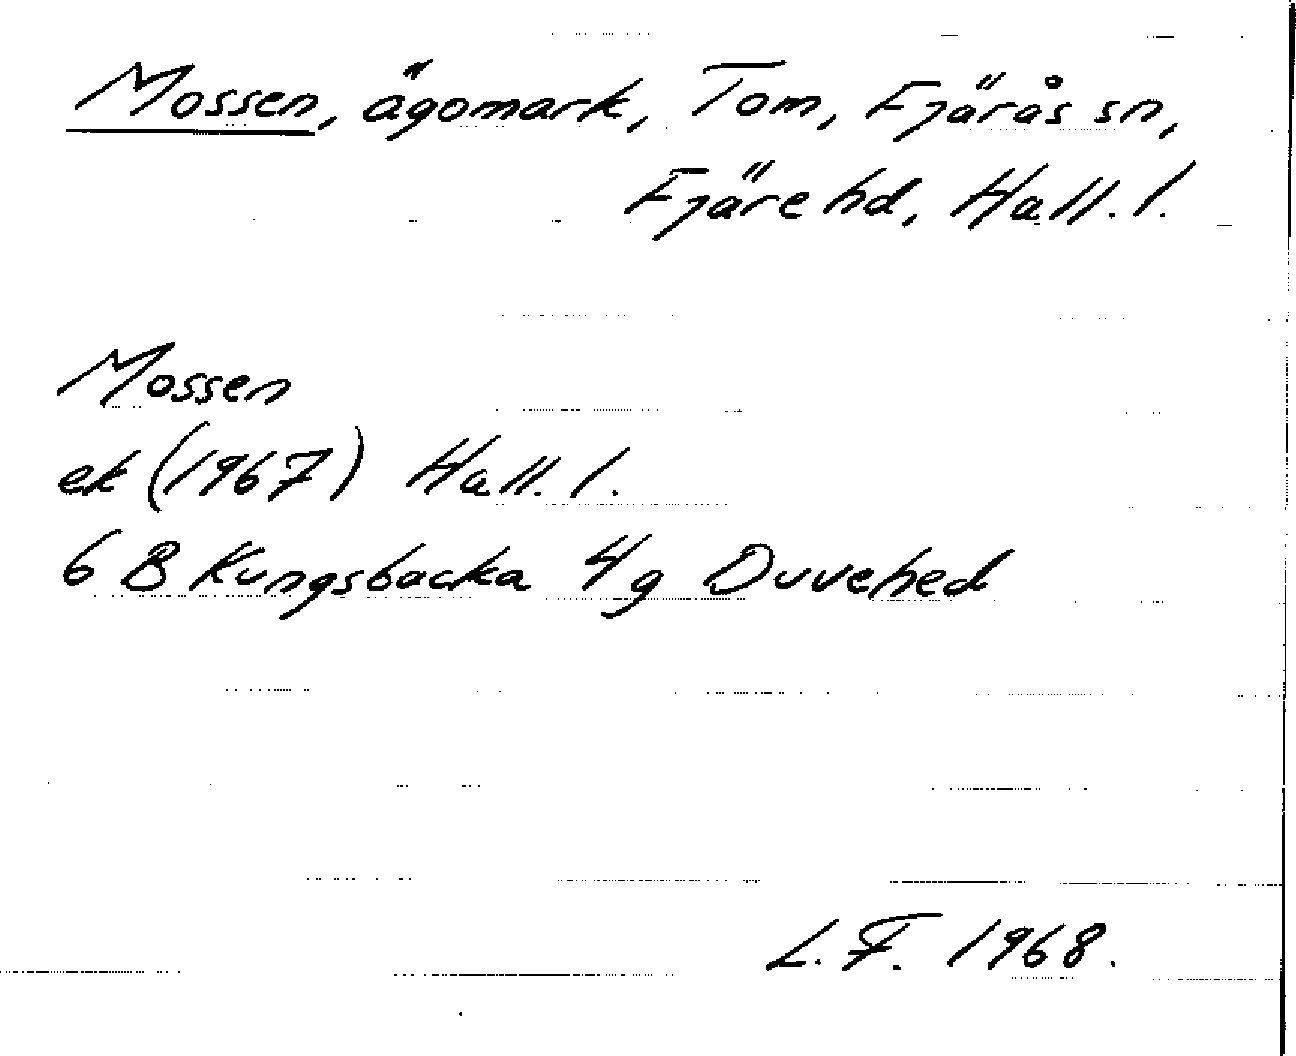 Mossen, ägomark, Tom, Fjärås sn,
Fjäre hd, Hall. l.
Mossen
ek (1967) Hall. l.
6 B Kungsbacka 4g Duvehed
L. F. 1968.